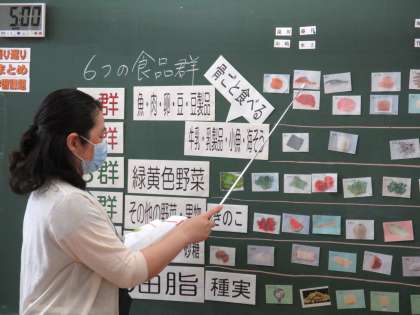 5:00
振り返り
まとめ
6つの食品群
骨ごと食べる
群
魚・肉・卵・豆・豆製品
群
牛乳・乳製品・小魚・海そう
群
緑黄色野菜
その他の野菜・果物
きのこ
砂糖
油脂
種実